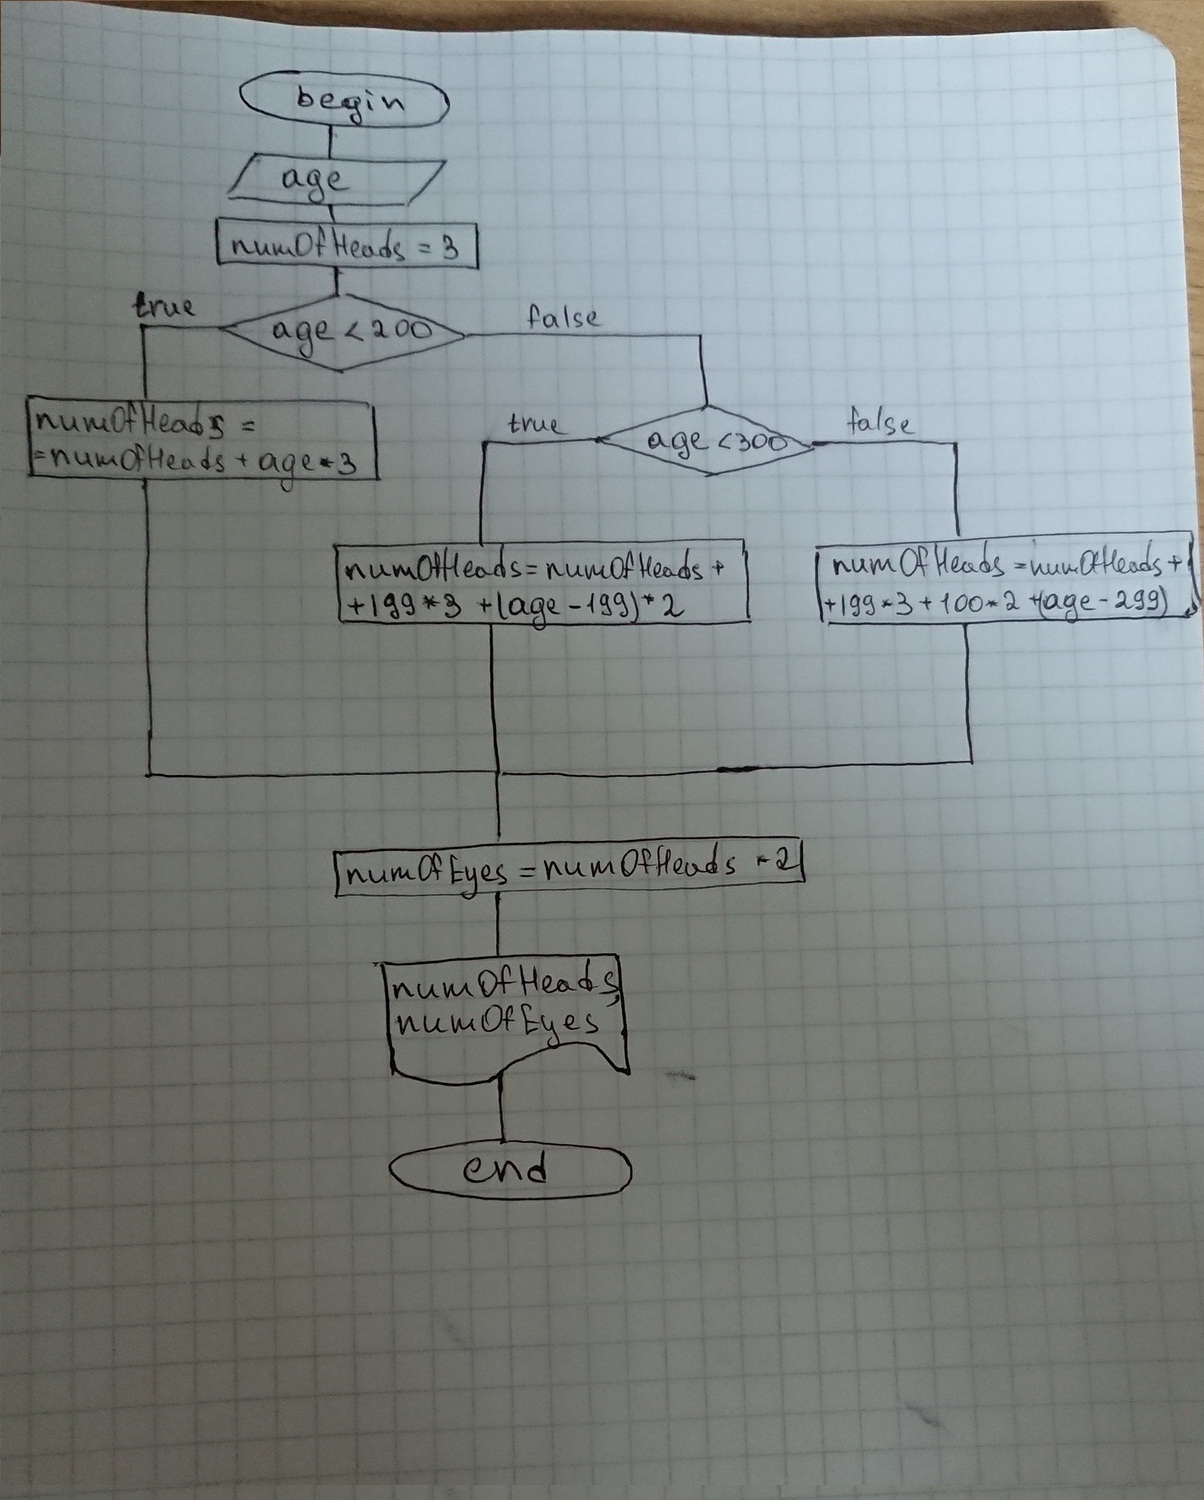 begin
age
numOfHeads = 3
true
age < 200
false
numOfHeads =
=numOfHeads + age*3
true
age <300
false
numOfHeads=numOfHeads +
+199*3 +(age-199)*2
numOfHeads=numOfHeads+
+199*3+100*2+(age-299)
numOfEyes = numOfHeads *2
numOfHeads,
numOfEyes
end